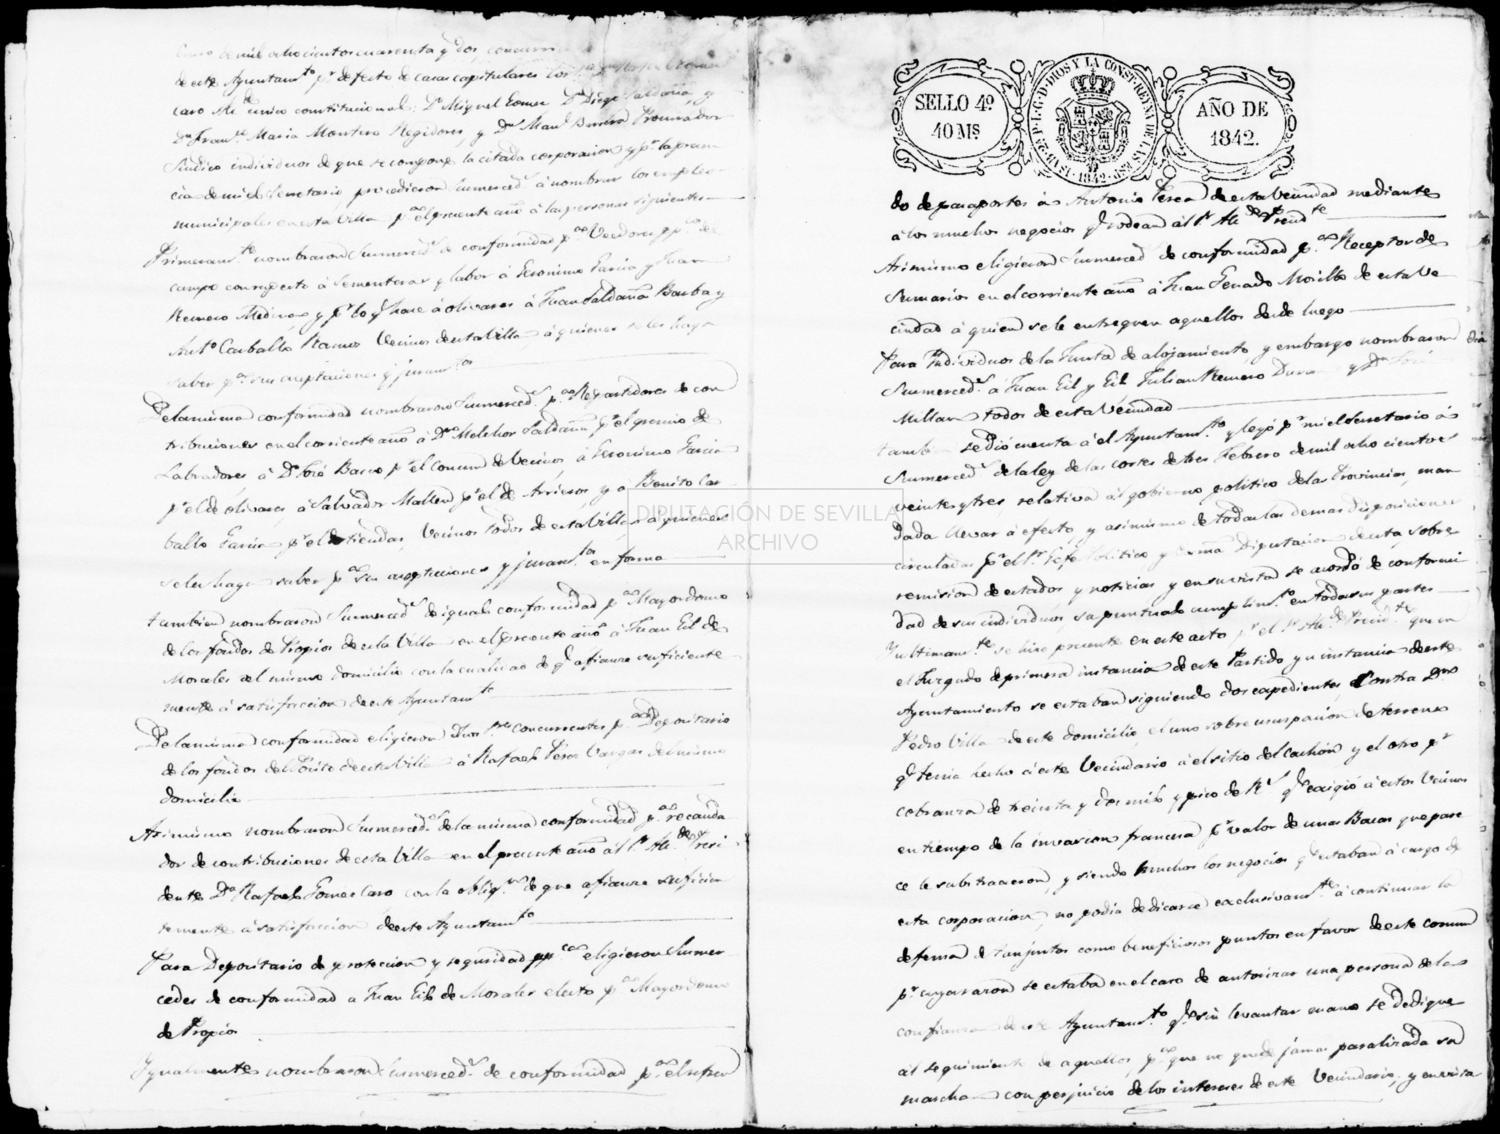 de mil ochocientos cuarenta y dos, concurri
de este Ayuntamto pr defecto de casas capitulares los
caro Alde unico constitucional; Dn Miguel Gomez Dn Diego Saldaña, y
Dn Franco Maria Montero Regidores, y Dn Manl Procurador
Sindico individuos de que se compone la citada corporacion y pr la presen
cia de mi el Secretario, procedieron Sumerceds á nombrar los empleos
municipales en esta Villa pa el presente año á las personas siguientes
Primeramte nombraron Sumerceds de conformidad pa Veedores pr de
campo con respecto á Sementeras y labor á Geronimo Garcia y Juan
Romero Medina, y pr lo qe hace á olivares á Juan Saldaña Barba y
Anto Carballo Ramos Vecinos de esta Villa á quienes se les haga
saber pa sus aceptaciones y juramtos
De la misma conformidad nombraron Sumerceds pa Repartidores de con
tribuciones en el corriente año á Dn Melchor Saldaña pr el gremio de
Labradores, á Dn José Barco pr el Comun de Vecinos, á Geronimo Garcia
pr el de olivares, á Salvador Mallen pr el de Arrieros, y a Benito Car
ballo Garcia pr el de tiendas, Vecinos todos de esta Villa a quienes
se les haga saber pa sus aceptaciones y juramtos en forma
tambien nombraron Sumerceds de igual conformidad pa Mayordomo
de los fondos de Propios de esta Villa en el presente año á Juan Gil de
Morales del mismo domicilio con la cualidad de qe afiance suficiente
mente á satisfaccion de este Ayuntamto
De la misma conformidad eligieron concurrentes pa Depositario
de los fondos del Pósito de esta Villa á Rafael Perez Vargas del mismo
domicilio
Asimismo nombraron Sumerceds de la misma conformidad pa recauda
dor de contribuciones de esta Villa en el presente año al Sr Alde Presi
dente Dn Rafael Gomez Caro con la obligon de que afiance suficien
temente á satisfaccion de este Ayuntamto
Para Depositario de proteccion y seguridad ppca eligieron Sumer
cedes de conformidad a Juan Gil de Morales electo pa Mayordomo
de Propios
Ygualmente nombraron Sumerceds de conformidad pa el
SELLO 4º
40 Ms
ISAB. 2ª P. L. G. D. DIOS Y LA CONST. REYNA DE LAS ESP.
1842
AÑO DE
1842.
do de pasaportes á Antonio Perea de esta Vecindad mediante
á los muchos negocios qe rodean al Sr Alde Presidte
Asimismo eligieron Sumerceds de conformidad pa Receptor de
Sumarios en el corriente año á Juan Penado Morillo de esta Ve
cindad á quien se le entreguen aquellos desde luego
Para Individuos de la Junta de alojamiento y embargo nombraron
Sumerceds á Juan Gil y Gil Julian Romero Duran y Dn José
Millan todos de esta Vecindad
tambn se dió cuenta á el Ayuntamto y leyó pr mi el Secretario á
Sumerceds de la ley de las cortes de tres Febrero de mil ocho cientos
veinte y tres, relativa al gobierno politico de las Provincias, man
dada llevar á efecto, y asimismo de todas las demas disposiciones
circuladas pr el Sr Gefe Politico y Exma Diputacion de esta, sobre
remision de estados y noticias y en su vista se acordó de conformi
dad de sus individuos, su puntual cumplimto en todas sus partes
Y ultimamte se hizo presente en este acto, pr el Sr Alde Presidte que en
el Juzgado de primera instancia de este Partido y a instancia de este
Ayuntamiento se estaban siguiendo dos espedientes Contra Dn
Pedro Villa de este domicilio, el uno sobre usurpacion de terreno
qe tenia hecho á este Vecindario á el sitio del Cachon y el otro pr
cobranza de treinta y dos mil y pico de Rs qe exigió á estos Vecinos
en tiempo de la invasion francesa pr valor de unas Bacas que pare
ce le substrageron, y siendo muchos los negocios qe estaban á cargo de
esta corporacion, no podia dedicarse exclusivamte á continuar la
defensa de tan justos como beneficiosos puntos en favor de este comun
pr cuya razon se estaba en el caso de autorizar una persona de la
confianza de este Ayuntamto qe sin levantar mano se dedique
al seguimiento de aquellos, pa que no quede jamas paralizada su
marcha con perjuicio de los intereses de este Vecindario, y en vista
DIPUTACIÓN DE SEVILLA
ARCHIVO